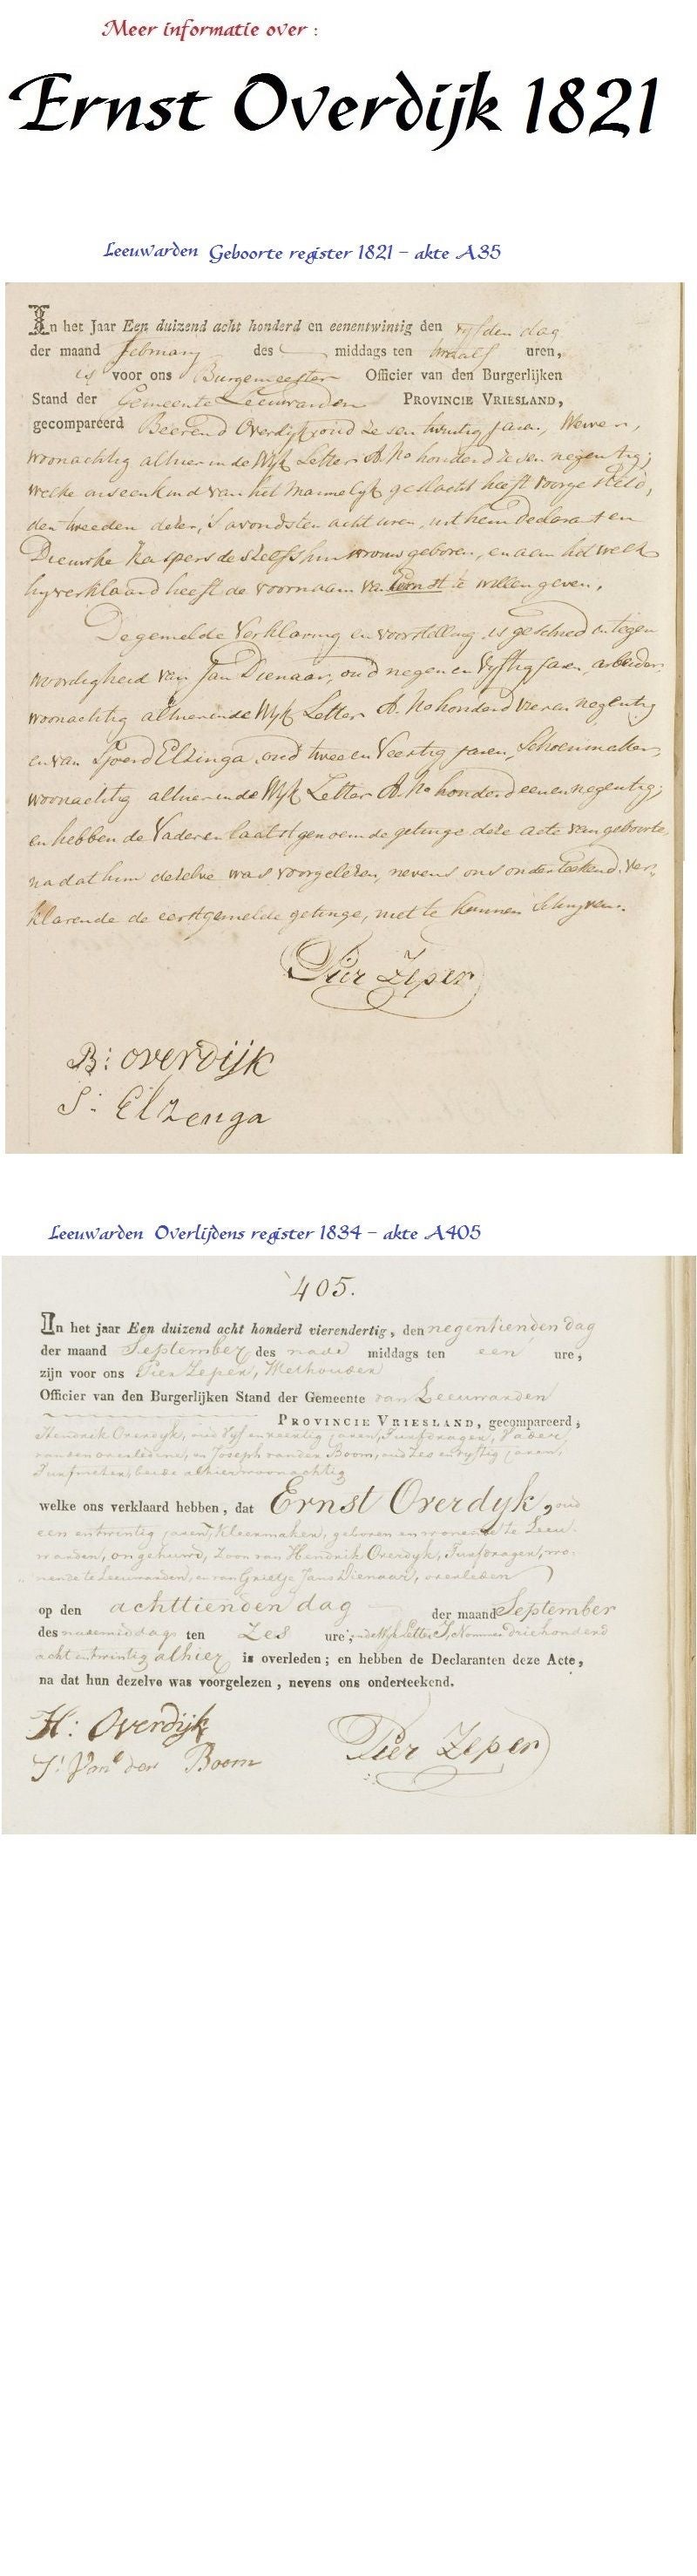 Meer informatie over :
Ernst Overdijk 1821
Leeuwarden Geboorte register 1821 – akte A35
In het Jaar Een duizend acht honderd en eenentwintig den vijfden dag
der maand february des middags ten twaalf uren,
is voor ons Burgemeester Officier van den Burgerlijken
Stand der Gemeente Leeuwarden PROVINCIE VRIESLAND,
gecompareerd Beerend Overdijk, oud zesentwintig jaren, Wever,
woonachtig alhier in de Wijk Letter A. No honderd zesennegentig;
welke ons een kind van het mannelijk geslacht heeft voorgesteld,
den tweeden dezer, 's avonds ten acht uren, uit hem Declarant en
Dieuwke Kaspers deszelfs huisvrouw geboren, en aan het welk
hij verklaard heeft de voornaam van Ernst te willen geven.
De gemelde Verklaring en voorstelling is geschied in tegen
woordigheid van Jan Dienaar, oud negen en vijftig jaren, arbeider,
woonachtig alhier in de Wijk Letter A. No honderd vier en negentig
en van Sjoerd Elzinga, oud twee en Veertig jaren, Schoenmaker,
woonachtig alhier in de Wijk Letter A. No honderd een en negentig;
en hebben de Vader en laatstgenoemde getuige deze acte van geboorte,
na dat hun dezelve was voorgelezen, nevens ons onderteekend. ver-
klarende de eerstgemelde getuige, niet te kunnen schrijven.
Pier Zeper
B: overdijk
S: Elzenga
Leeuwarden Overlijdens register 1834 – akte A405
405.
In het jaar Een duizend acht honderd vierendertig, den negentienden dag
der maand September des nade middags ten een ure,
zijn voor ons Pier Zeper, Wethouder
Officier van den Burgerlijken Stand der Gemeente van Leeuwarden
PROVINCIE VRIESLAND, gecompareerd;
Hendrik Overdyk, oud Vijf en veertig jaren, Turfdrager, Vader
van den overledene, en Joseph van der Boom, oud Zes en vijftig jaren,
Turfmeter, beide alhier woonachtig
welke ons verklaard hebben, dat Ernst Overdyk, oud
een en twintig jaren, Kleermaker, geboren en wonende te Leeu-
warden, ongehuwd, Zoon van Hendrik Overdyk, Turfdrager, wo-
nende te Leeuwarden, en van Grietje Jans Dienaar, overleden
op den achttienden dag der maand September
des nademiddags ten Zes ure, in de Wijk Letter I, Nommer driehonderd
acht en twintig alhier is overleden; en hebben de Declaranten deze Acte,
na dat hun dezelve was voorgelezen, nevens ons onderteekend.
H: Overdijk
J: Van der Boom
Pier Zeper